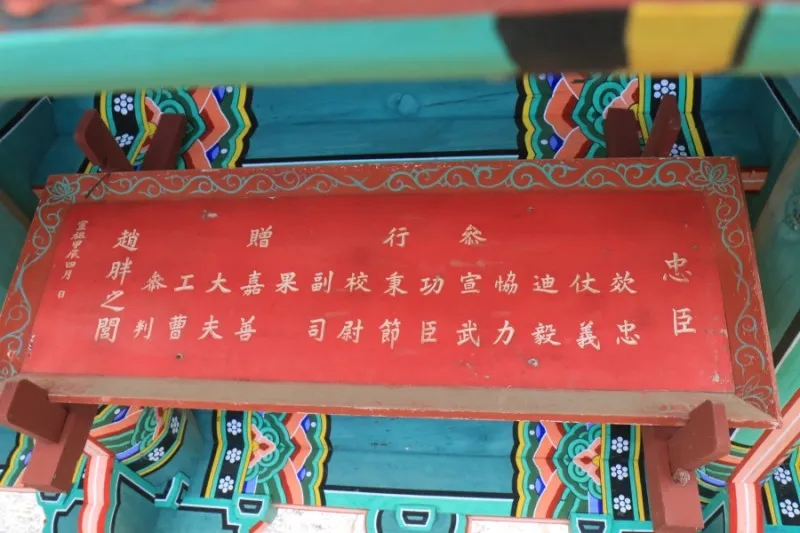 忠臣
效忠
仗義
迪毅
恊力
叅宣武
功臣
行秉節
校尉
副司
果
贈嘉善
大夫
工曹
叅判
趙胖之閭
宣祖甲辰四月 日